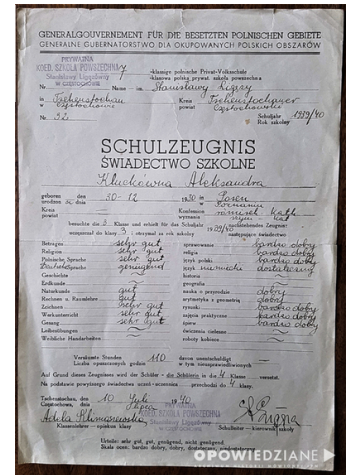 GENERALGOUVERNEMENT FÜR DIE BESETZTEN POLNISCHEN GEBIETE
GENERALNE GUBERNATORSTWO DLA OKUPOWANYCH POLSKICH OBSZARÓW
PRYWATNA
KOED. SZKOŁA POWSZECHNA
W CZĘSTOCHOWIE
7 -klassige polnische Privat-Volksschule
-klasowa polską prywat. szkoła powszechna
Nr. Name - im. Stanisławy
in Tschenstochau Kreis Tschenstochauer
w Częstochowie Powiat Częstochowski
Nr. 32 Schuljahr 1939/40
Rok szkolny
SCHULZEUGNIS
ŚWIADECTWO SZKOLNE
Kluckówna Aleksandra
geboren den 30-12 1930 in Posen
urodzona dn. w Poznaniu
Kreis Konfession
powiat wyznania
besuchte die 3 Klasse und erhielt für das Schuljahr 1939/40 nachstehendes Zeugnis:
uczęszczał do klasy 3 i otrzymał za rok szkolny następujące świadectwo:
Betragen sehr gut sprawowanie bardzo dobry
Religion sehr gut religia bardzo dobry
Polnische Sprache sehr gut język polski bardzo dobry
Deutsche Sprache genügend język niemiecki dostateczny
Geschichte historia
Erdkunde geografia
Naturkunde gut nauka o przyrodzie dobry
Rechnen u. Raumlehre gut arytmetyka z geometrią dobry
Zeichnen sehr gut rysunki bardzo dobry
Werkunterricht sehr gut zajęcia praktyczne bardzo dobry
Gesang sehr gut śpiew bardzo dobry
Leibesübungen ćwiczenia cielesne
Weibliche Handarbeiten roboty kobiece
Versäumte Stunden 110 davon unentschuldigt
Liczba opuszczonych godzin w tym nieusprawiedliwionych
Auf Grund dieses Zeugnisses wird der Schüler - die Schülerin in die 4 Klasse versetzt.
Na podstawie powyższego świadectwa uczeń - uczennica przechodzi do 4 klasy.
Tschenstochau, den 10 Juli 1940
Częstochowa, dnia lipca
KOED. SZKOŁA POWSZECHNA
W CZĘSTOCHOWIE
Adela Klimaszewska
Klassenleiter - opiekun klasy Schulleiter - kierownik szkoły
Urteile: sehr gut, gut, genügend, nicht genügend
Skala ocen: bardzo dobry, dobry, dostateczny, niedostateczny
OPOWIEDZIANE